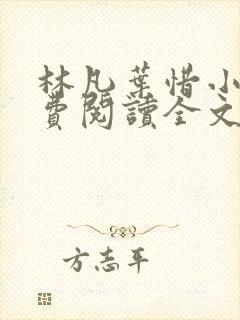 林凡葉惜小
費閱讀全文
方志平